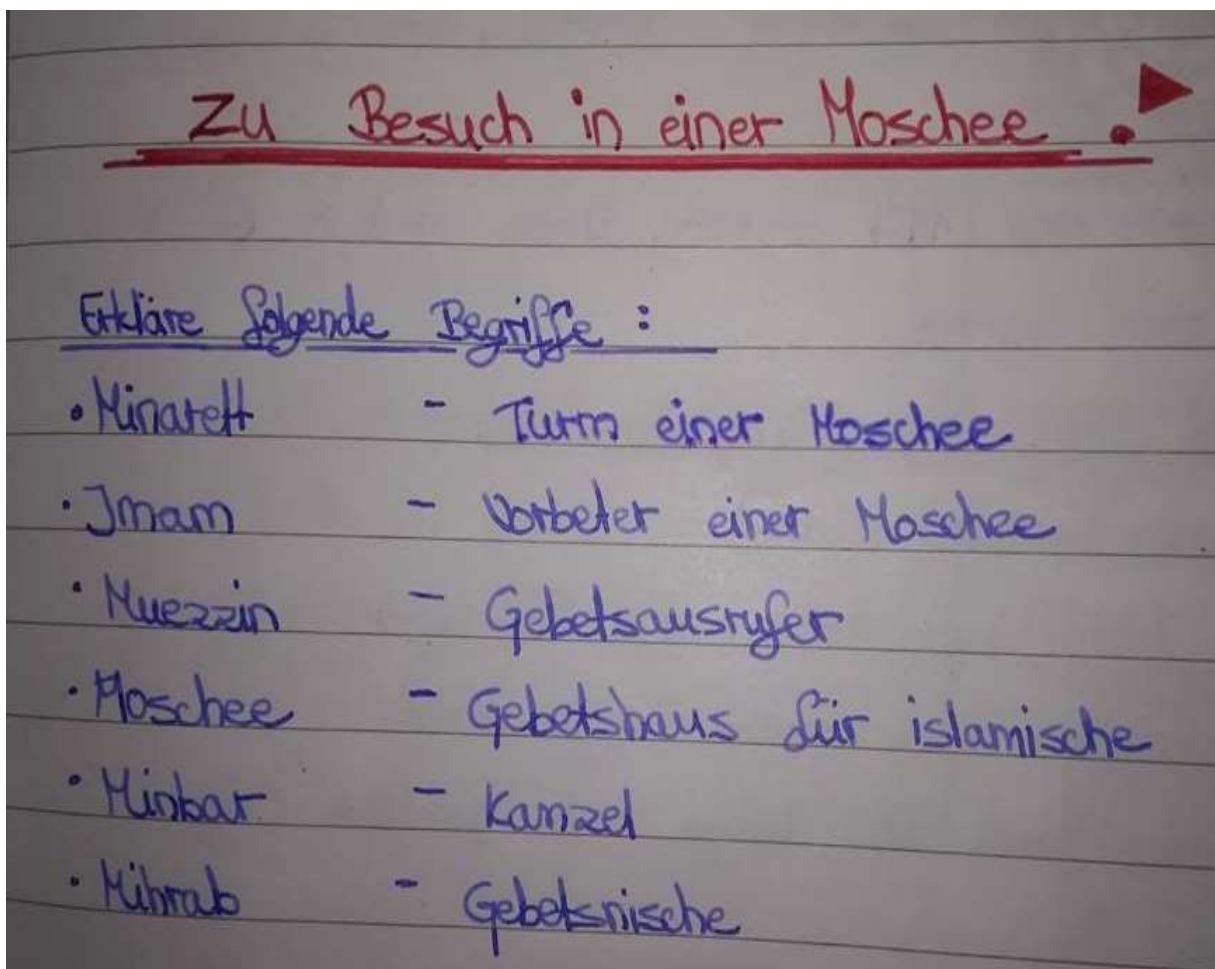 Zu Besuch in einer Moschee .
Erkläre folgende Begriffe :
• Minarett - Turm einer Moschee
• Imam - Vorbeter einer Moschee
• Muezzin - Gebetsausrufer
• Moschee - Gebetshaus für islamische
• Minbar - Kanzel
• Mihrab - Gebetsnische